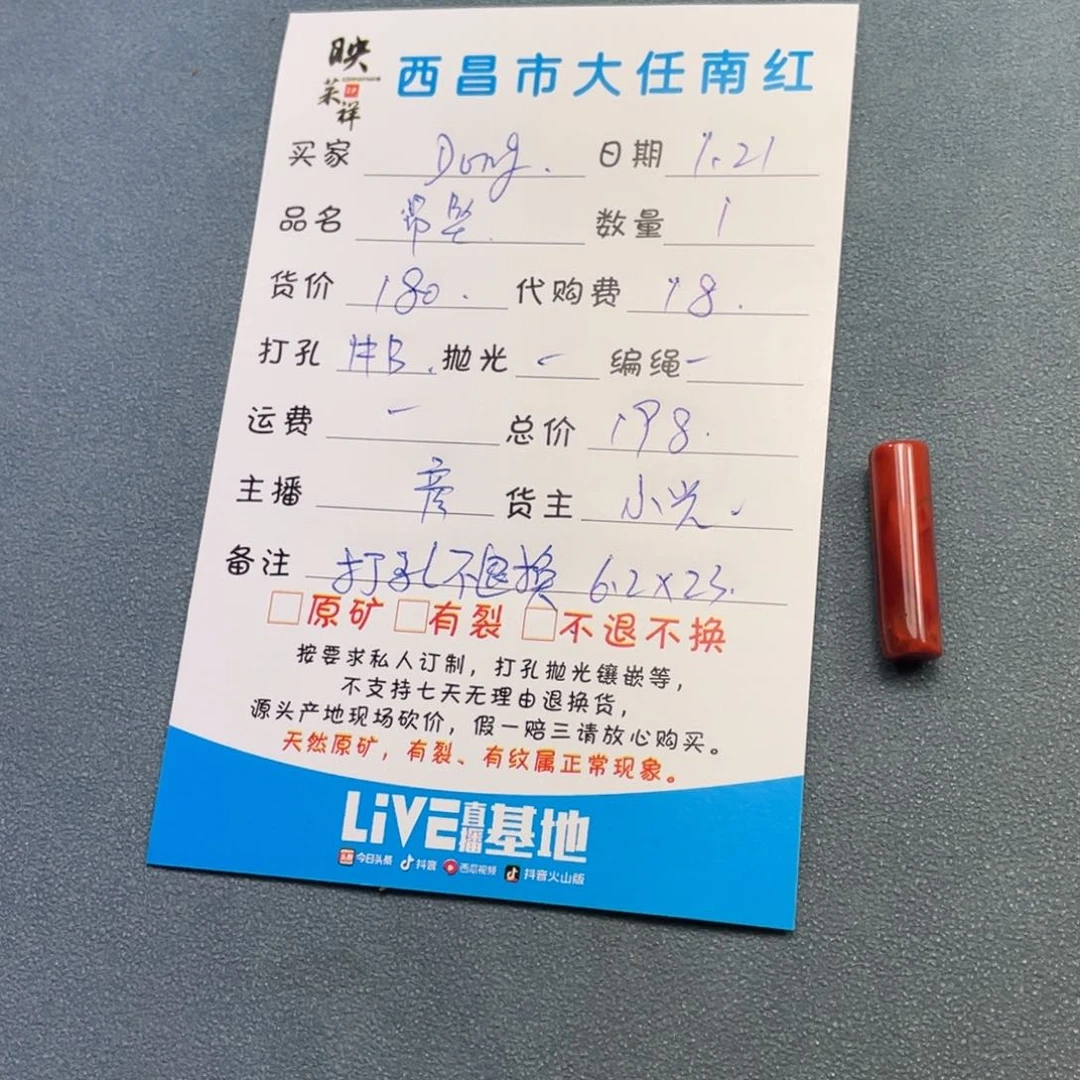 映
莱祥
西昌市大任南红
买家 Dong. 日期 1.21
品名 数量 1
货价 180. 代购费 18.
打孔 抛光 - 编绳 -
运费 - 总价 198.
主播 彦 货主 小光.
备注 打孔不退换 6.2×23.
□原矿 □有裂 □不退不换
按要求私人订制，打孔抛光镶嵌等，
不支持七天无理由退换货，
源头产地现场砍价，假一赔三请放心购买。
天然原矿，有裂、有纹属正常现象。
LiVE直播基地
今日头条 抖音 西瓜视频 抖音火山版